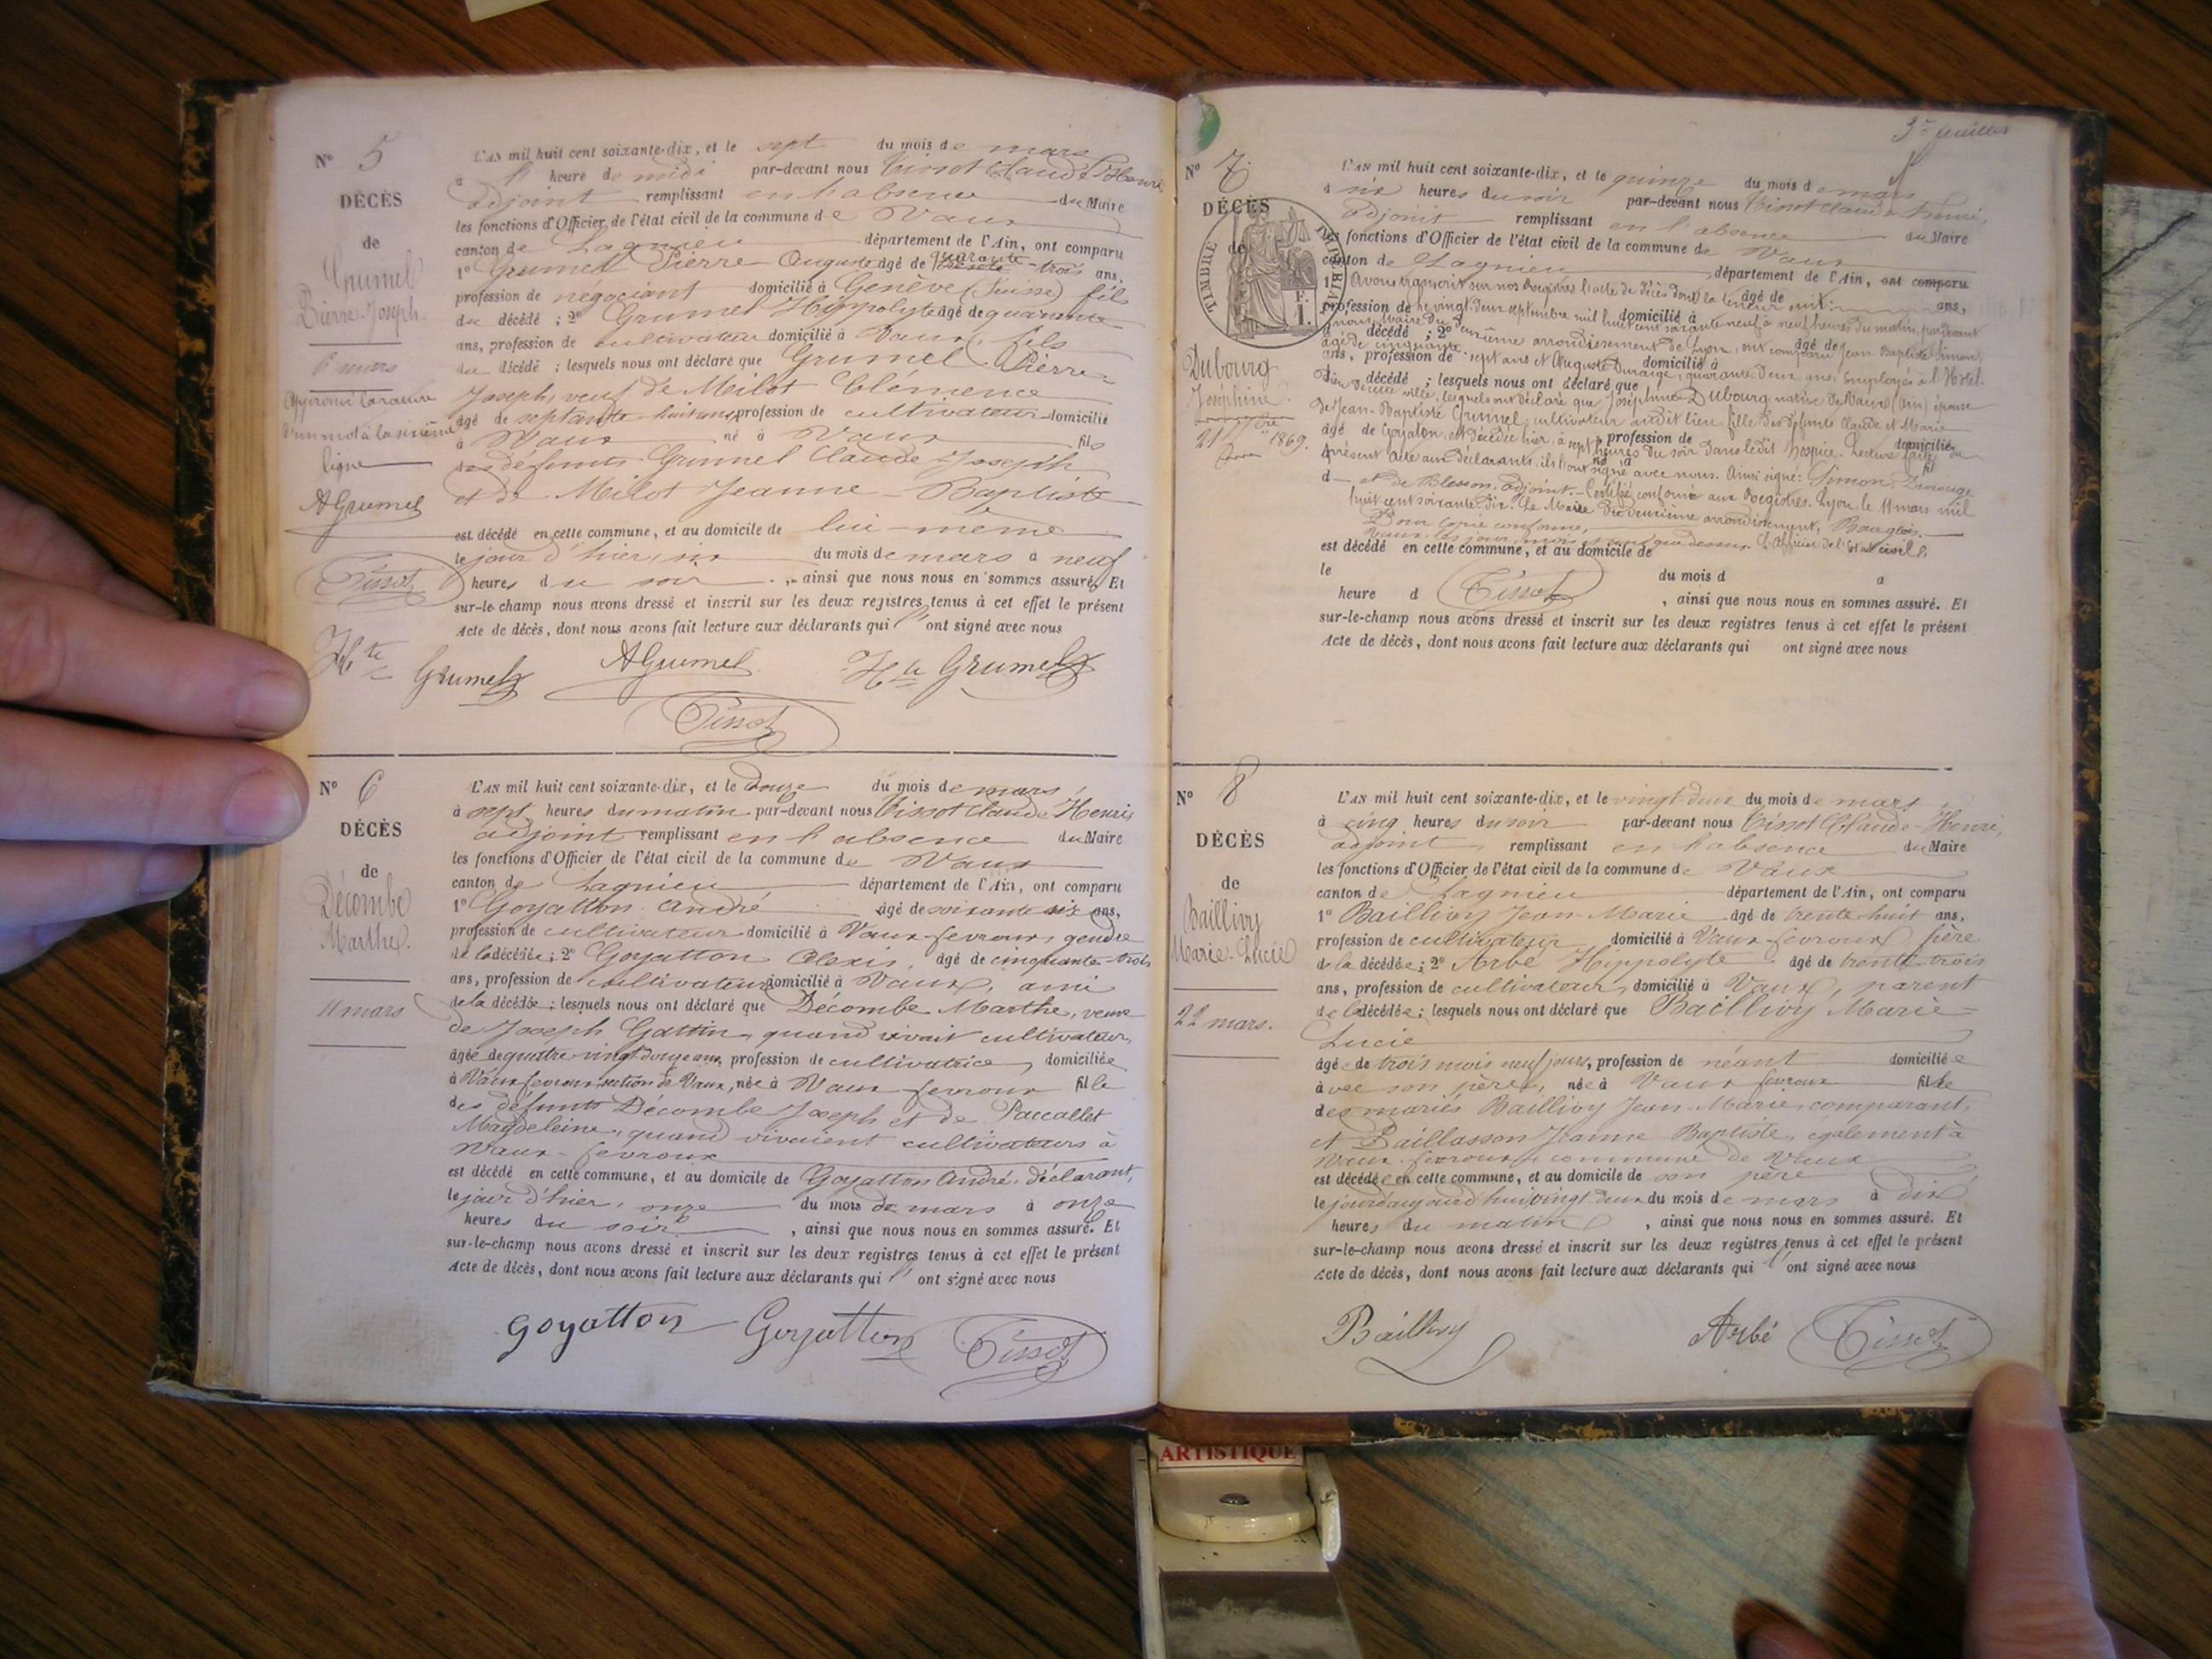 N° 5
DÉCÈS
de
Grumel
Pierre-Joseph.
6 mars
Approuvé la rature
d'un mot à la sixième
ligne
AGrumel
Tissot
L'AN mil huit cent soixante-dix, et le sept du mois de mars
à l' heure de midi par-devant nous Tissot Claude-Henri
adjoint remplissant en l'absence du Maire
les fonctions d'Officier de l'état civil de la commune de Vaux
canton de Lagnieu département de l'Ain, ont comparu
1° Grumel Pierre-Auguste âgé de quarante-trois ans,
profession de négociant domicilié à Genève (Suisse) fils
du décédé ; 2° Grumel Hippolyte âgé de quarante
ans, profession de cultivateur domicilié à Vaux, fils
du décédé ; lesquels nous ont déclaré que Grumel Pierre-
Joseph, veuf de Milot Clémence
âgé de septante-huit ans, profession de cultivateur domicilié
à Vaux né à Vaux fils
des défunts Grumel Claude Joseph
et de Milot Jeanne-Baptiste
est décédé en cette commune, et au domicile de lui-même
le jour d'hier, six du mois de mars à neuf
heures du soir, ainsi que nous nous en sommes assuré, Et
sur-le-champ nous avons dressé et inscrit sur les deux registres tenus à cet effet le présent
Acte de décès, dont nous avons fait lecture aux déclarants qui l'ont signé avec nous
Hte Grumel AGrumel Hte Grumel
Tissot
N° 6
DÉCÈS
de
Décombe
Marthe.
11 mars
L'AN mil huit cent soixante-dix, et le douze du mois de mars,
à sept heures du matin par-devant nous Tissot Claude-Henri,
adjoint remplissant en l'absence du Maire
les fonctions d'Officier de l'état civil de la commune de Vaux
canton de Lagnieu département de l'Ain, ont comparu
1° Goyatton André âgé de soixante six ans,
profession de cultivateur domicilié à Vaux-fevroux, gendre
de la décédée; 2° Goyatton Alexis, âgé de cinquante-trois
ans, profession de cultivateur domicilié à Vaux, ami
de la décédée ; lesquels nous ont déclaré que Décombe Marthe, veuve
de Joseph Gattin, quand vivait cultivateur,
âgée de quatre-vingt-douze ans, profession de cultivatrice, domiciliée
à Vaux-fevroux section de Vaux, née à Vaux fevroux fille
des défunts Décombe Joseph et de Paccallet
Magdeleine, quand vivaient cultivateurs à
Vaux-fevroux
est décédé en cette commune, et au domicile de Goyatton André, déclarant,
le jour d'hier, onze du mois de mars à onze
heures du soir, ainsi que nous nous en sommes assuré. Et
sur-le-champ nous avons dressé et inscrit sur les deux registres tenus à cet effet le présent
Acte de décès, dont nous avons fait lecture aux déclarants qui l'ont signé avec nous
Goyatton Goyatton Tissot
3e feuillet
N° 7
DÉCÈS
de
TIMBRE IMPERIAL
1 F.
Dubourg
Joséphine.
21 7bre 1869.
L'AN mil huit cent soixante-dix, et le quinze du mois de mars
à six heures du soir par-devant nous Tissot Claude-Henri,
adjoint remplissant en l'absence du Maire
les fonctions d'Officier de l'état civil de la commune de Vaux
canton de Lagnieu département de l'Ain, ont comparu
1° Avons transcrit sur nos Registres l'acte de décès dont la teneur suit: âgé de ans,
profession de Le vingt-deux septembre mil huit cent soixante neuf à neuf heures du matin, pardevant domicilié à
nous, Maire du deuxième arrondissement de Lyon, ont comparu Jean-Baptiste Simon, décédé ; 2° âgé de
âgé de cinquante-sept ans et Auguste Durouge, quarante-deux ans, Employés à l'Hôtel- ans, profession de domicilié à
Dieu de cette ville, lesquels ont déclaré que Joséphine Dubourg, native de Vaux (Ain) épouse décédé ; lesquels nous ont déclaré que
de Jean-Baptiste Grumel, cultivateur audit lieu, fille des défunts Claude et Marie
Goyaton, est décédée hier, à sept heures du soir dans ledit hospice. Lecture faite du âgé de profession de domicilié
présent acte aux déclarants, ils l'ont signé avec nous. Ainsi signé: Simon, Durouge
et de Blesson, adjoint.- Certifié conforme aux Registres. Lyon, le 11 mars mil
huit cent soixante-dix. Le Maire du deuxième arrondissement,
Pour copie conforme,
Vaux, les jour, mois et an que dessus. L'Officier de l'Etat civil.
est décédé en cette commune, et au domicile de
le du mois d à
heure d Tissot , ainsi que nous nous en sommes assuré. Et
sur-le-champ nous avons dressé et inscrit sur les deux registres tenus à cet effet le présent
Acte de décès, dont nous avons fait lecture aux déclarants qui ont signé avec nous
N° 8
DÉCÈS
de
Baillivy
Marie-Lucie
22 mars.
L'AN mil huit cent soixante-dix, et le vingt-deux du mois de mars
à cinq heures du soir par-devant nous Tissot Claude-Henri,
adjoint, remplissant en l'absence du Maire
les fonctions d'Officier de l'état civil de la commune de Vaux
canton de Lagnieu département de l'Ain, ont comparu
1° Baillivy Jean-Marie âgé de trente-huit ans,
profession de cultivateur domicilié à Vaux-fevroux, père
de la décédée; 2° Arbé Hippolyte âgé de trente-trois
ans, profession de cultivateur, domicilié à Vaux, parent
de la décédée; lesquels nous ont déclaré que Baillivy Marie-
Lucie
âgée de trois mois neuf jours, profession de néant domiciliée
avec son père, née à Vaux fevroux fille
des mariés Baillivy Jean-Marie, comparant,
et Baillasson Jeanne-Baptiste, également à
Vaux-fevroux, commune de Vaux
est décédée en cette commune, et au domicile de son père
le jourd'aujourd'hui vingt-deux du mois de mars à dix
heures du matin, ainsi que nous nous en sommes assuré. Et
sur-le-champ nous avons dressé et inscrit sur les deux registres tenus à cet effet le présent
Acte de décès, dont nous avons fait lecture aux déclarants qui l'ont signé avec nous
Baillivy Arbé Tissot
ARTISTIQUE